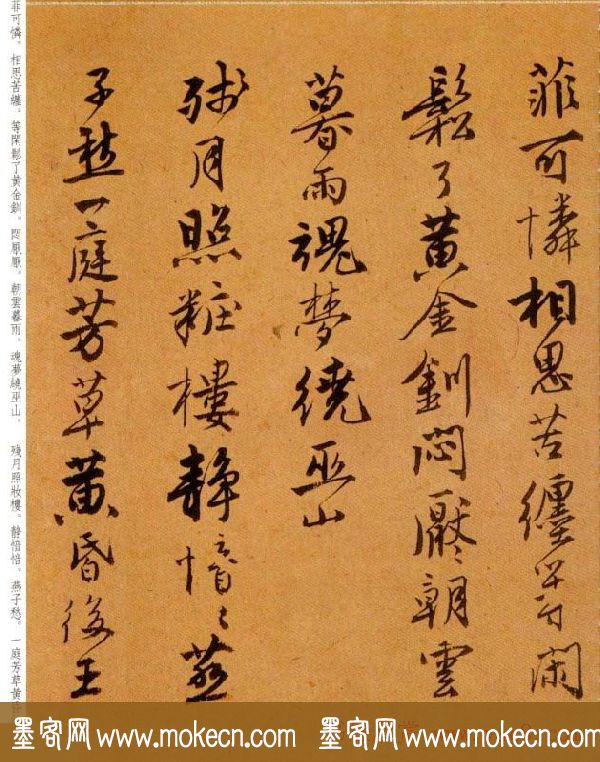 菲可憐相思苦纏等閑
鬆了黃金釧悶厭〻朝雲
暮雨魂夢繞巫山
殘月照粧樓靜愔〻燕
子愁一庭芳草黃昏後王
非可憐。相思苦纏。等閑鬆了黃金釧。悶厭厭。朝雲暮雨。魂夢繞巫山。 殘月照妝樓。靜愔愔。燕子愁。一庭芳草黃
墨客网 www.mokecn.com 墨客网 www.mokecn.com